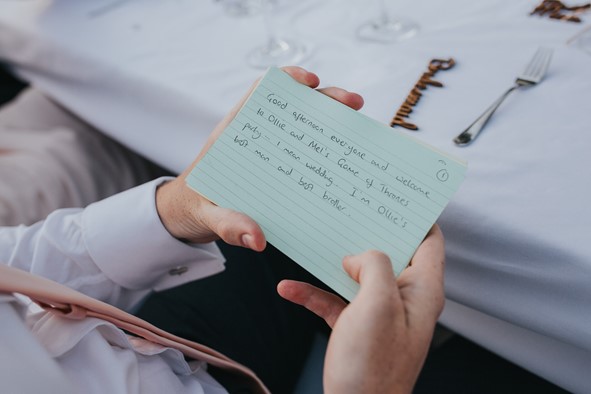 ①
Good afternoon everyone and welcome
to Ollie and Mel's Game of Thrones
party.. I mean wedding. I'm Ollie's
best man and best brother.